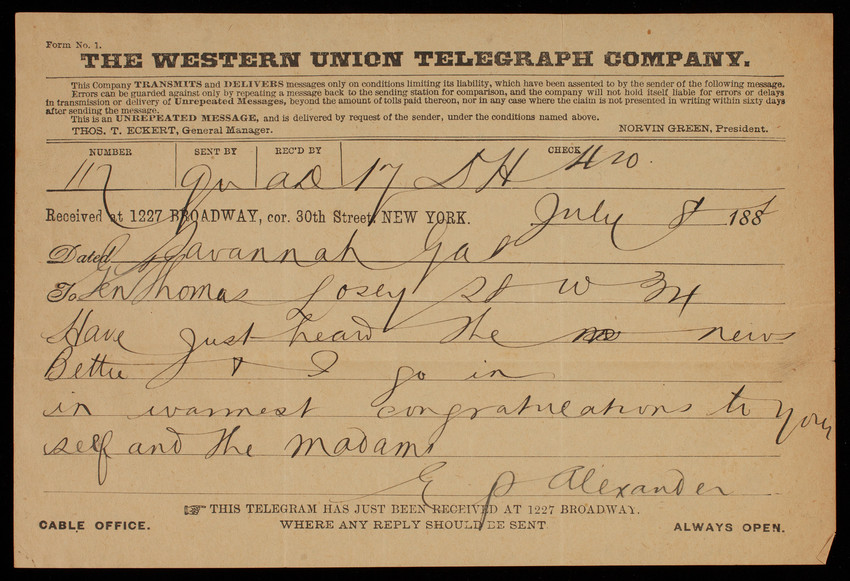 Form No. 1.
THE WESTERN UNION TELEGRAPH COMPANY.
This Company TRANSMITS and DELIVERS messages only on conditions limiting its liability, which have been assented to by the sender of the following message.
Errors can be guarded against only by repeating a message back to the sending station for comparison, and the company will not hold itself liable for errors or delays
in transmission or delivery of Unrepeated Messages, beyond the amount of tolls paid thereon, nor in any case where the claim is not presented in writing within sixty days
after sending the message.
This is an UNREPEATED MESSAGE, and is delivered by request of the sender, under the conditions named above.
THOS. T. ECKERT, General Manager. NORVIN GREEN, President.
NUMBER SENT BY REC'D BY CHECK
117 AD 17 DH
Received at 1227 BROADWAY, cor. 30th Street, NEW YORK. July 8 1888
Dated Savannah Ga 8
To Gen Thomas L Casey W 34
Have just heard the news
Bettie & I go in
in warmest congratulations to your
self and the Madam
E P Alexander
THIS TELEGRAM HAS JUST BEEN RECEIVED AT 1227 BROADWAY,
CABLE OFFICE. WHERE ANY REPLY SHOULD BE SENT ALWAYS OPEN.